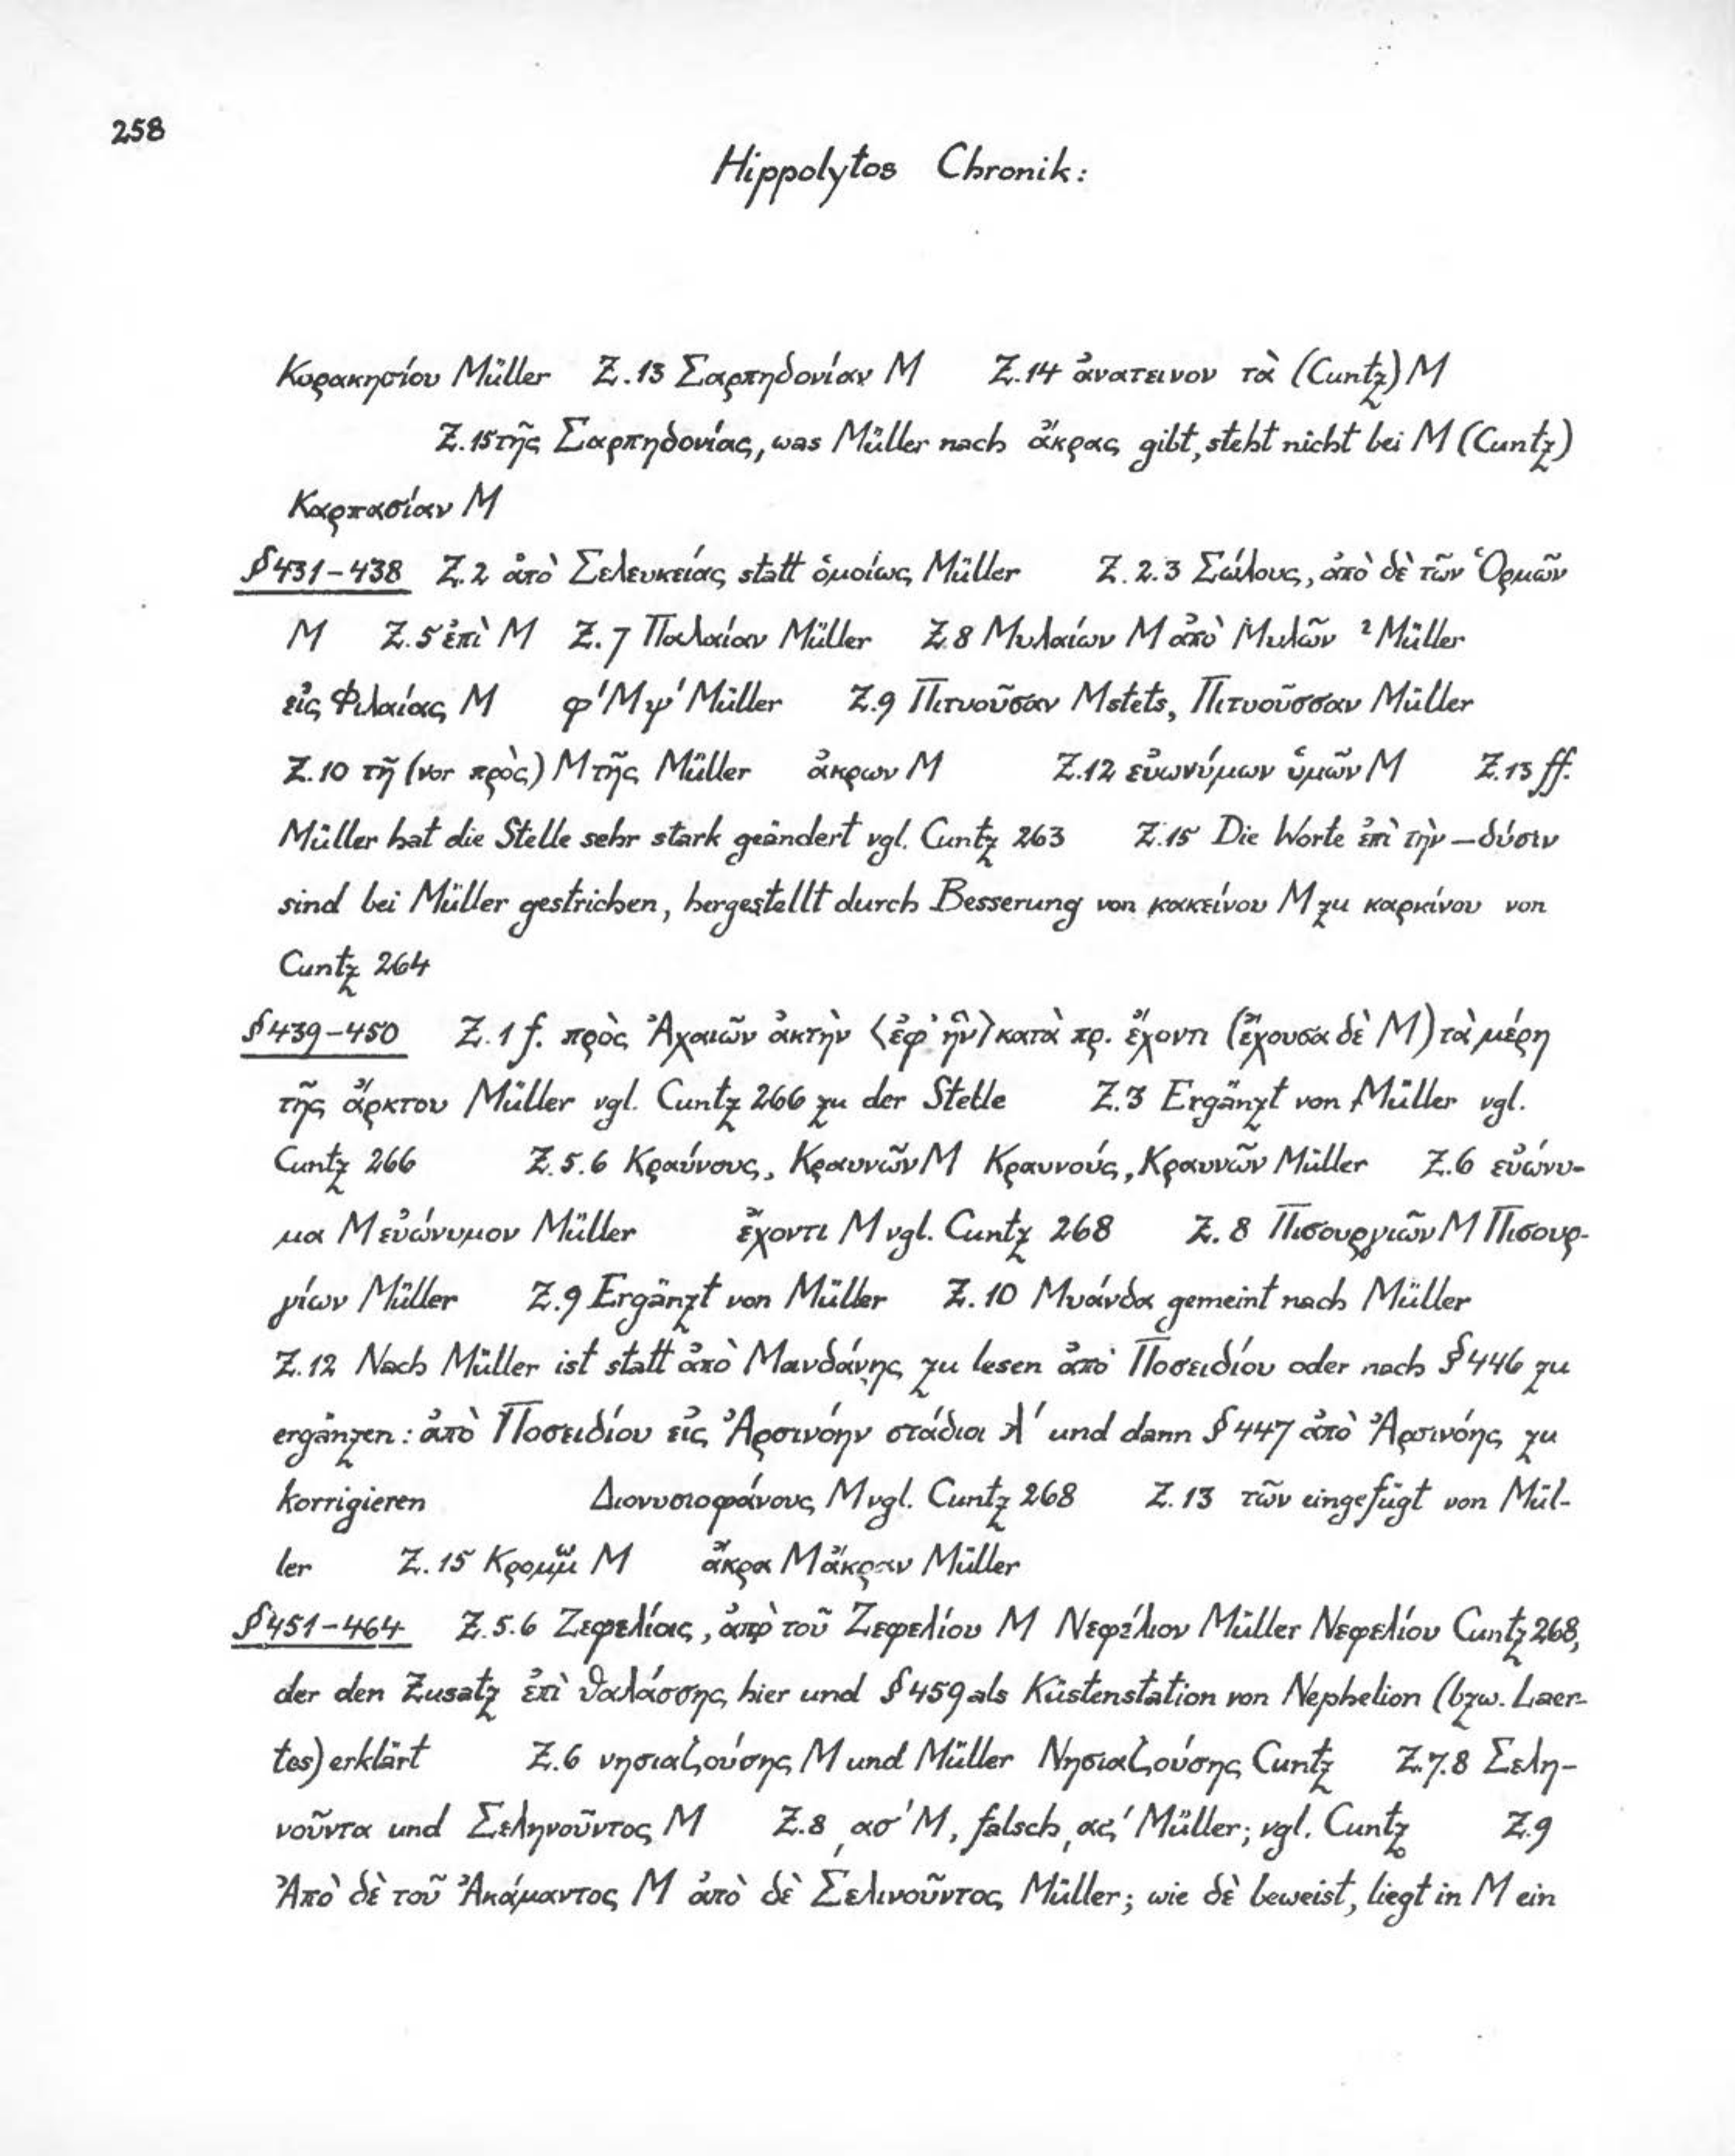 258
Hippolytos Chronik:
Κορακησίου Müller Z.13 Σαρπηδονίαν M Z.14 ἀνατεινον τὰ (Cuntz) M
Z.15 τῆς Σαρπηδονίας, was Müller nach ἄκρας gibt, steht nicht bei M (Cuntz)
Καρπασίαν M
§431-438 Z.2 ἀπὸ Σελευκείας statt ὁμοίως Müller Z.2.3 Σώλους, ἀπὸ δὲ τῶν Ὁρμῶν
M Z.5 ἐπὶ M Z.7 Παλαίαν Müller Z.8 Μυλαίων M ἀπὸ Μυλῶν ² Müller
εἰς Φιλαίας M φ' M ψ' Müller Z.9 Πιτυοῦσαν M stets, Πιτυοῦσσαν Müller
Z.10 τῆ (vor πρὸς) M τῆς Müller ἄκρων M Z.12 εὐωνύμων ὑμῶν M Z.13 ff.
Müller hat die Stelle sehr stark geändert vgl. Cuntz 263 Z.15 Die Worte ἐπὶ τὴν – δύσιν
sind bei Müller gestrichen, hergestellt durch Besserung von κακείνου M zu καρκίνου von
Cuntz 264
§439-450 Z.1 f. πρὸς Ἀχαιῶν ἀκτὴν ⟨ἐφ' ἣν⟩ κατὰ πρ. ἔχοντι (ἔχουσα δὲ M) τὰ μέρη
τῆς ἄρκτου Müller vgl. Cuntz 266 zu der Stelle Z.3 Ergänzt von Müller vgl.
Cuntz 266 Z.5.6 Κραύνους, Κραυνῶν M Κραυνούς, Κραυνῶν Müller Z.6 εὐώνυ-
μα M εὐώνυμον Müller ἔχοντι M vgl. Cuntz 268 Z.8 Πισουργιῶν M Πισουρ-
γίων Müller Z.9 Ergänzt von Müller Z.10 Μυάνδα gemeint nach Müller
Z.12 Nach Müller ist statt ἀπὸ Μανδάνης zu lesen ἀπὸ Ποσειδίου oder nach §446 zu
ergänzen: ἀπὸ Ποσειδίου εἰς Ἀρσινόην στάδιοι λ' und dann §447 ἀπὸ Ἀρσινόης zu
korrigieren Διονυσιοφάνους M vgl. Cuntz 268 Z.13 τῶν eingefügt von Mül-
ler Z.15 M ἄκρα M ἄκραν Müller
§451-464 Z.5.6 Ζεφελίας, ἀπὸ τοῦ Ζεφελίου M Νεφέλιον Müller Νεφελίου Cuntz 268,
der den Zusatz ἐπὶ θαλάσσης hier und §459 als Küstenstation von Nephelion (bzw. Laer-
tes) erklärt Z.6 νησιαζούσης M und Müller Νησιαζούσης Cuntz Z.7.8 Σελη-
νοῦντα und Σεληνοῦντος M Z.8 ͵ασ' M, falsch ͵ας' Müller; vgl. Cuntz Z.9
Ἀπὸ δὲ τοῦ Ἀκάμαντος M ἀπὸ δὲ Σελινοῦντος Müller; wie δὲ beweist, liegt in M ein